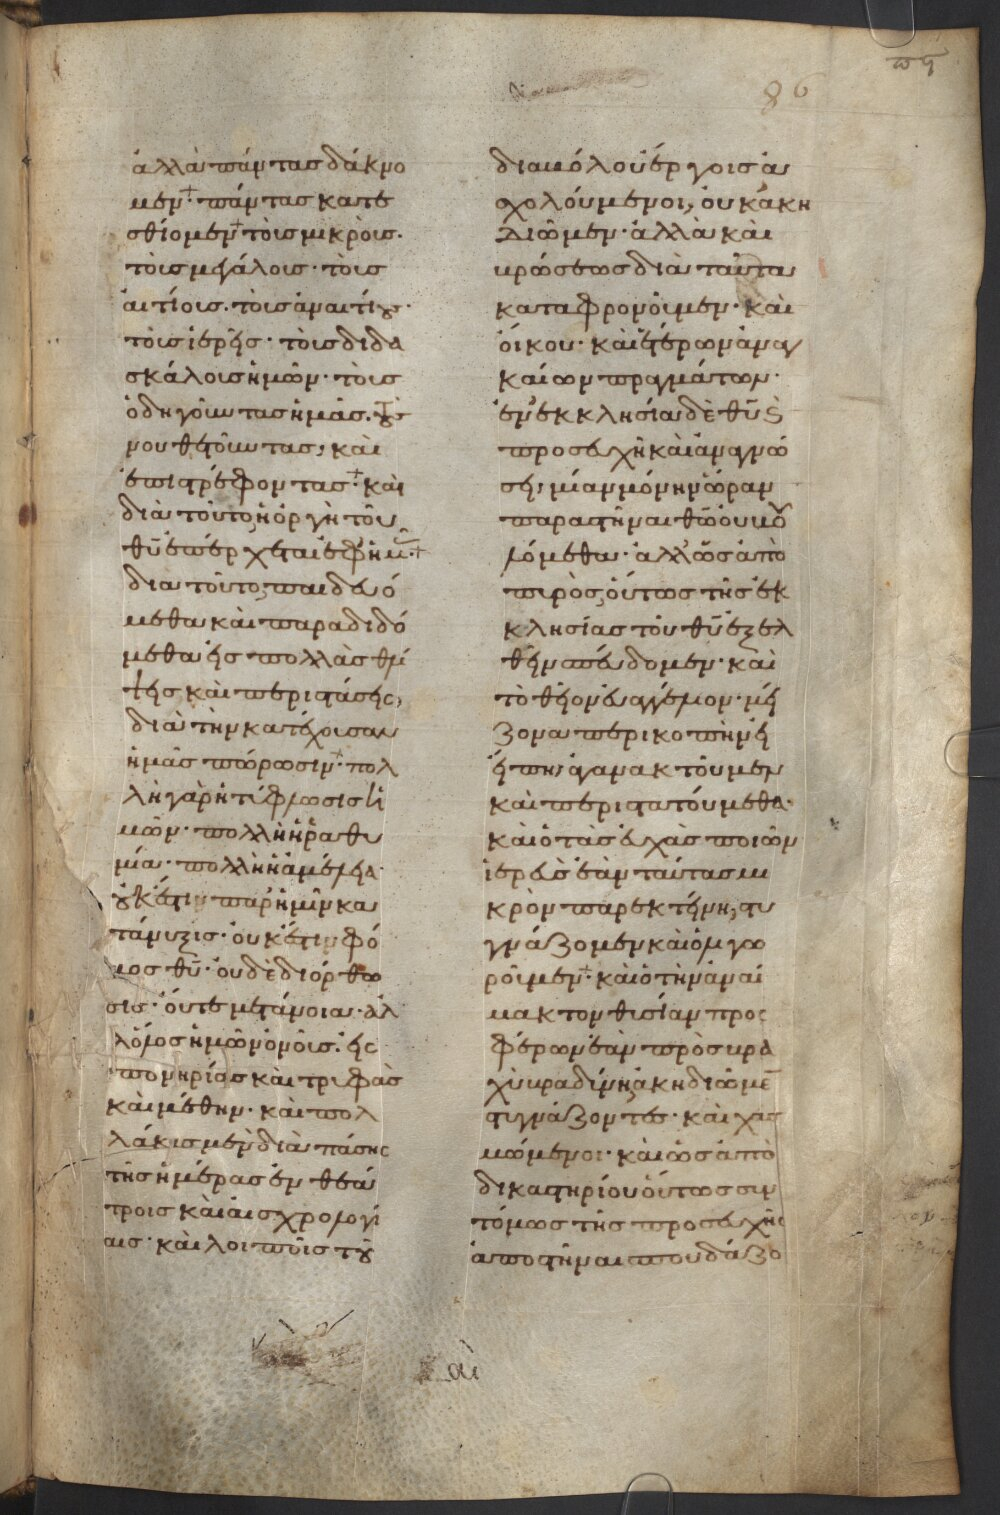 πϛ
86
ἀλλὰ πάντας δάκνο
μεν· πάντας κατε
σθίομεν τοῖς μικροῖς·
τοῖς μεγάλοις· τοῖς
αἰτίοις· τοῖς ἀναιτίοις·
τοῖς ἱερεῖς· τοῖς διδα
σκάλοις ἡμῶν· τοῖς
ὁδηγοῦντας ἡμᾶς· τοὺς
νουθετοῦντας, καὶ
ἐπιστρέφοντας· καὶ
διὰ τοῦτο ἡ ὀργὴ τοῦ
θῦ ἐπέρχεται ἐφ' ἡμ
διὰ τοῦτο, παιδευό
μεθα καὶ παραδιδό
μεθα εἰς πολλὰς θλί
ψεις καὶ περιστάσεις,
διὰ τὴν κατέχουσαν
ἡμᾶς πώρωσιν· πολ
λὴ γὰρ ἡ τύφλωσις ἡ
μῶν· πολλὴ ἡ ῥαθυ
μία· πολλὴ ἡ ἀμέλεια·
οὐκ ἔστιν παρ' ἡμῖν κα
τάνυξις· οὐκ ἔστιν φό
βος θῦ· οὐδὲ διόρθω
σις· οὔτε μετάνοια· ἀλ
λ' ὅλος ἡμῶν ὁ νοῦς· εἰς
πονηρίας καὶ τρυφὰς
καὶ μέθην· καὶ πολ
λάκις μὲν διὰ πάσης
τῆς ἡμέρας ἐν θεά
τροις καὶ αἰσχρολογί
αις· καὶ λοιποῖς τοῦ
διαβόλου ἔργοις ἀ
σχολούμενοι, οὐκ ἀκη
διῶμεν· ἀλλὰ καὶ
βρώσεως διὰ ταῦτα
καταφρονοῦμεν· καὶ
οἴκου· καὶ ἑτέρων ἀναγ
καίων πραγμάτων·
ἐν ἐκκλησία δὲ θῦ ἐ
προσευχῆ καὶ ἀναγνώ
σει, μίαν μόνην ὥραν
παραστῆναι θῶ οὐ βου
λόμεθα· ἀλλ' ὡς ἀπὸ
πυρὸς, οὕτως τῆς ἐκ
κλησίας τοῦ θῦ ἐξελ
θεῖν σπεύδομεν· καὶ
τὸ θεῖον εὐαγγέλιον· μεί
ζονα περικοπὴν εἰ
εἴπη, ἀγανακτοῦμεν
καὶ περιπατούμεθα·
καὶ ὁ τὰς εὐχὰς ποιῶν
ἱερεὺς ἐὰν ταύτας μι
κρὸν παρεκτείνη, στυ
γνάζομεν καὶ ὀλιγω
ροῦμεν· καὶ ὁ τὴν ἀναί
μακτον θυσίαν προσ
φέρων ἐὰν πρὸς βρα
χὺ βραδύνη ἀκηδιῶμε
στυγνάζοντες· καὶ χασ
μώμενοι· καὶ ὡς ἀπὸ
δικαστηρίου οὕτως συν
τόμως τῆς προσευχῆς
ἀποστῆναι σπουδάζο